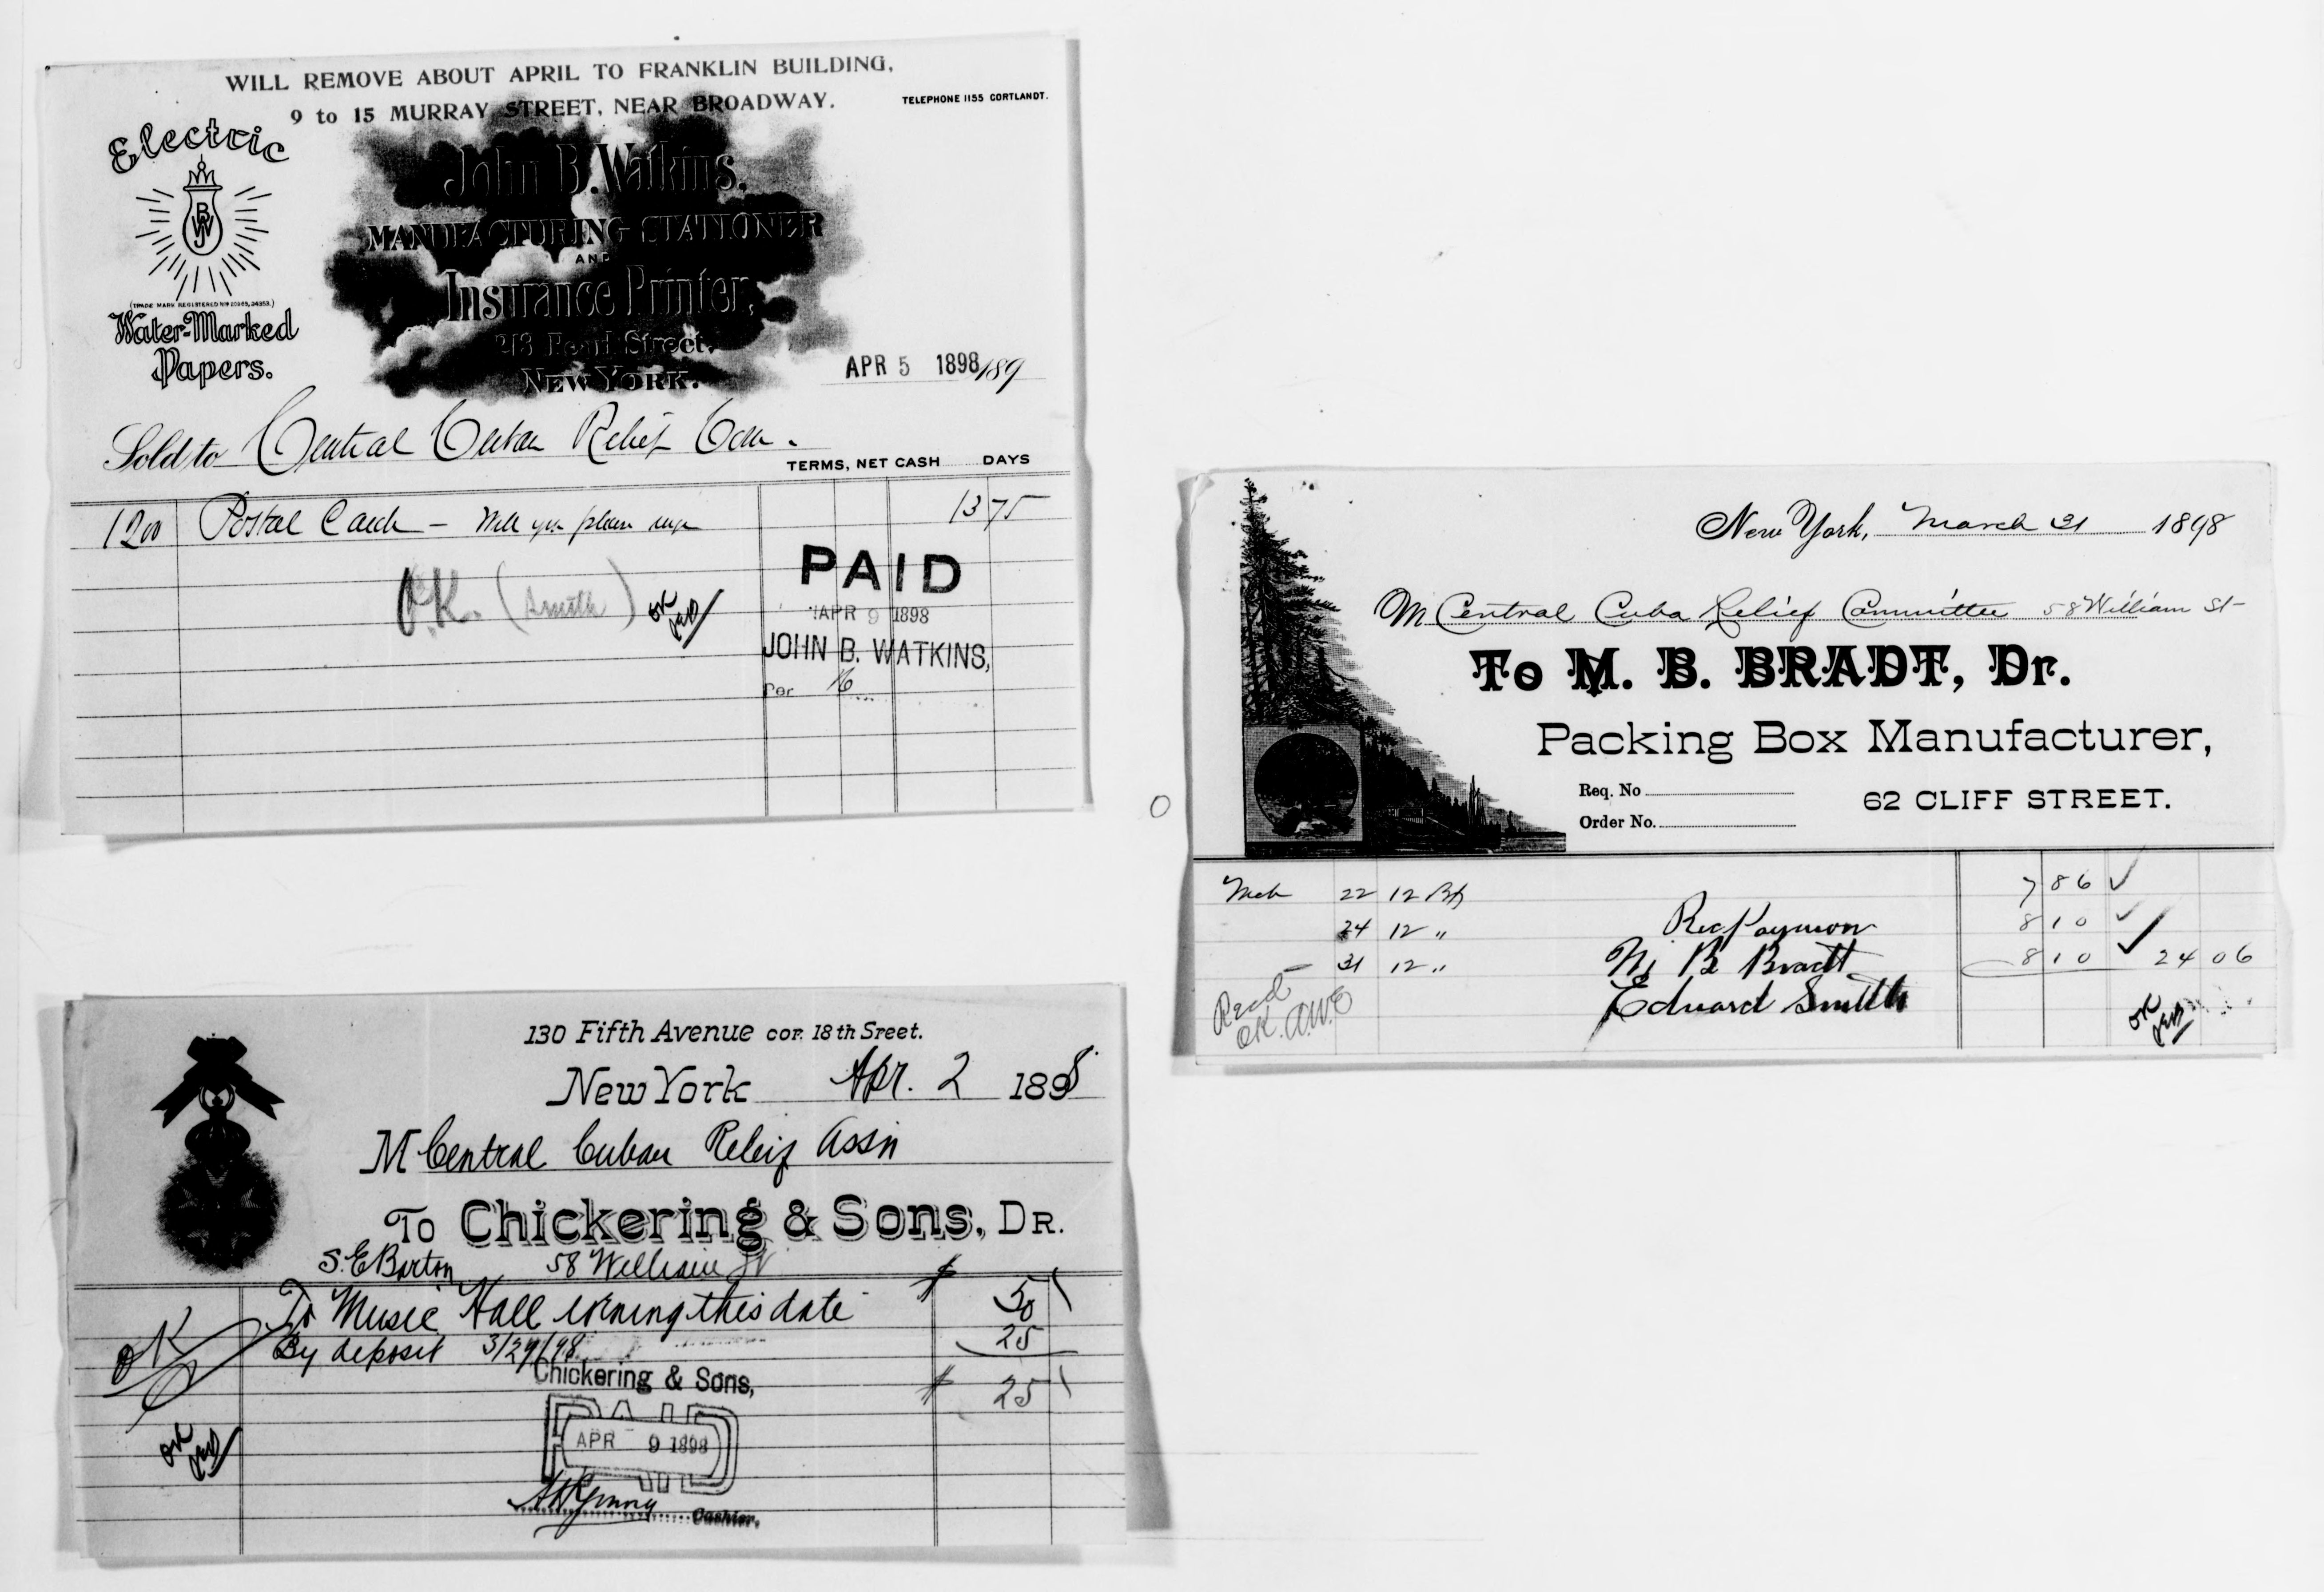 WILL REMOVE ABOUT APRIL TO FRANKLIN BUILDING,
9 to 15 MURRAY STREET, NEAR BROADWAY.
TELEPHONE 1155 CORTLANDT.
Electric
JBW
(TRADE MARK REGISTERED
Water-Marked
Papers.
John B. Watkins.
MANUFACTURING STATIONER
AND
Insurance Printer,
213 Pearl Street.
NEW YORK.
APR 5 1898 189
Sold to Central Cuban Relief Com.
TERMS, NET CASH DAYS
1200 Postal Cards — Will you please 13 75
O.K. (Smith) OK
PAID
APR 9 1898
JOHN B. WATKINS,
Per
New York, March 31 1898
M Central Cuba Relief Committee 58 William St-
To M. B. BRADT, Dr.
Packing Box Manufacturer,
Req. No
62 CLIFF STREET.
Order No.
Mch 22 12 Bxs 7 86 ✓
24 12 " 8 10 ✓
31 12 " 8 10 ✓ 24 06
Rec Paymon
M B Bradt
Edward Smith
Recd
OK. A.W.C
OK
130 Fifth Avenue cor. 18th Sreet.
New York Apr. 2 1898
M Central Cuban Releif Assn
To Chickering & Sons, DR.
S. E Barton 58 William St
To Music Hall evening this date $ 50
By deposit 3/29/98 25
$ 25
OK
OK
Chickering & Sons,
PAID
APR 9 1898
Cashier.